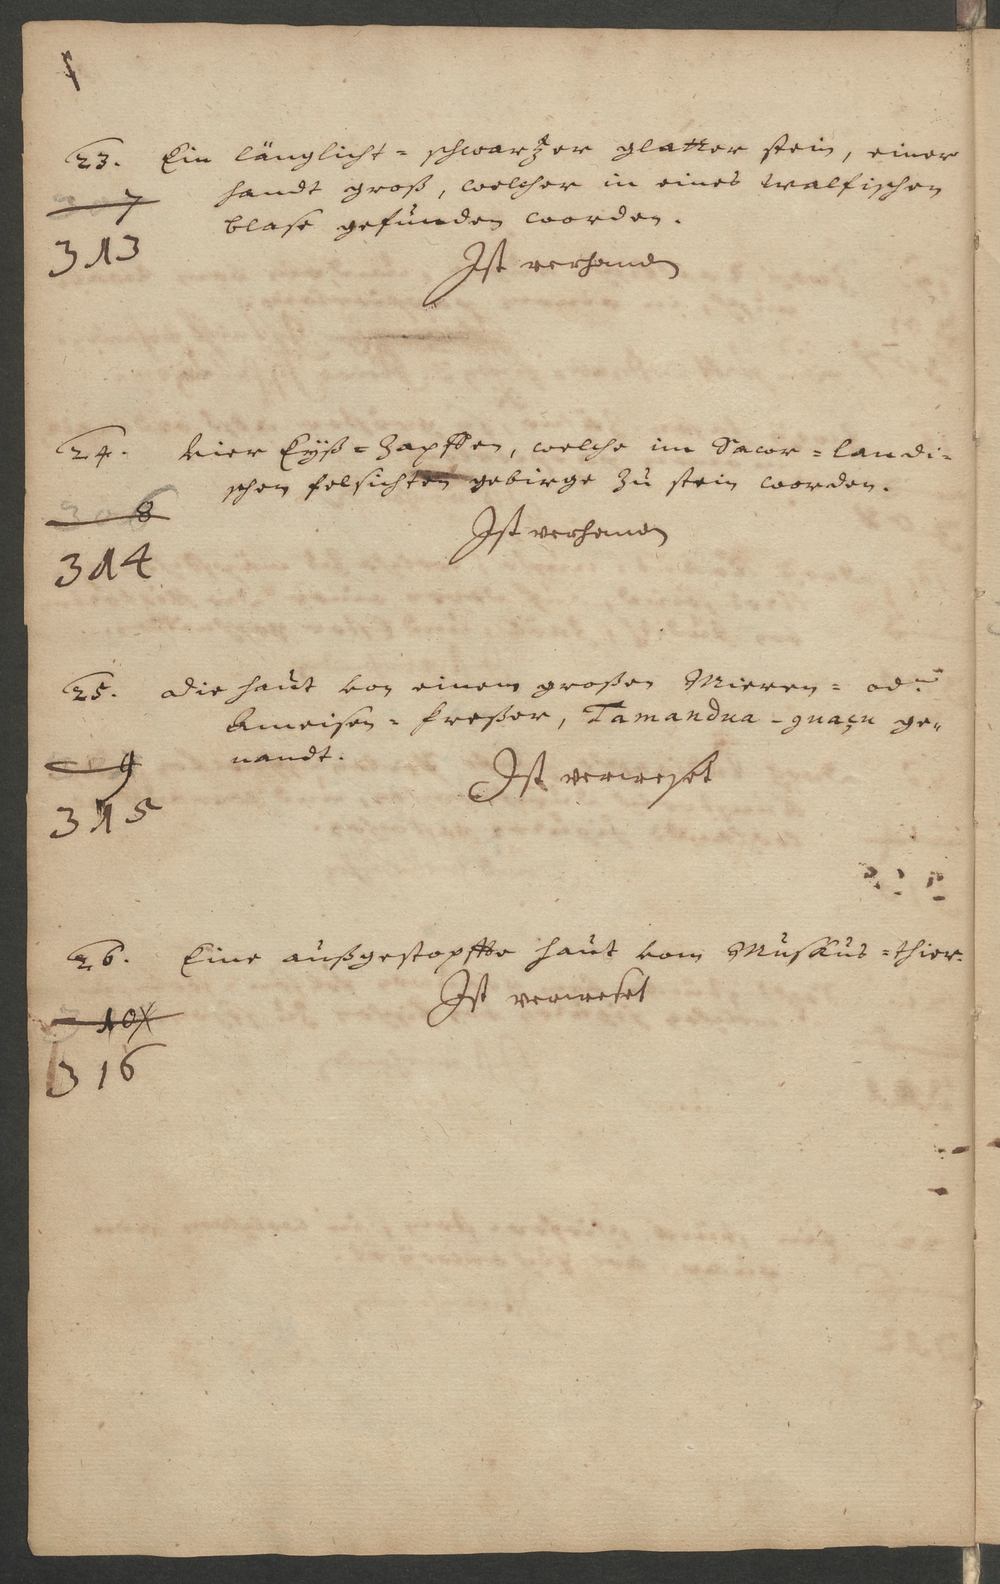 23. Ein länglicht-schwartzer glatter stein, einer
7
handt groß, welcher in eines Walfischen
313
blase gefunden worden.
Ist verhanden
24. Vier Eyß-Zapffen, welche im Savor-landi-
schen felsichten gebirge zu stein worden.
8
Ist verhanden
314
25. Die haut von einem großen Mieren- od.
Ameisen-freßer, Tamandua-guaçu ge-
9
nandt.
Ist verweset
315
26. Eine außgestopffte haut vom Muskus-thier.
Ist verweset
10
316